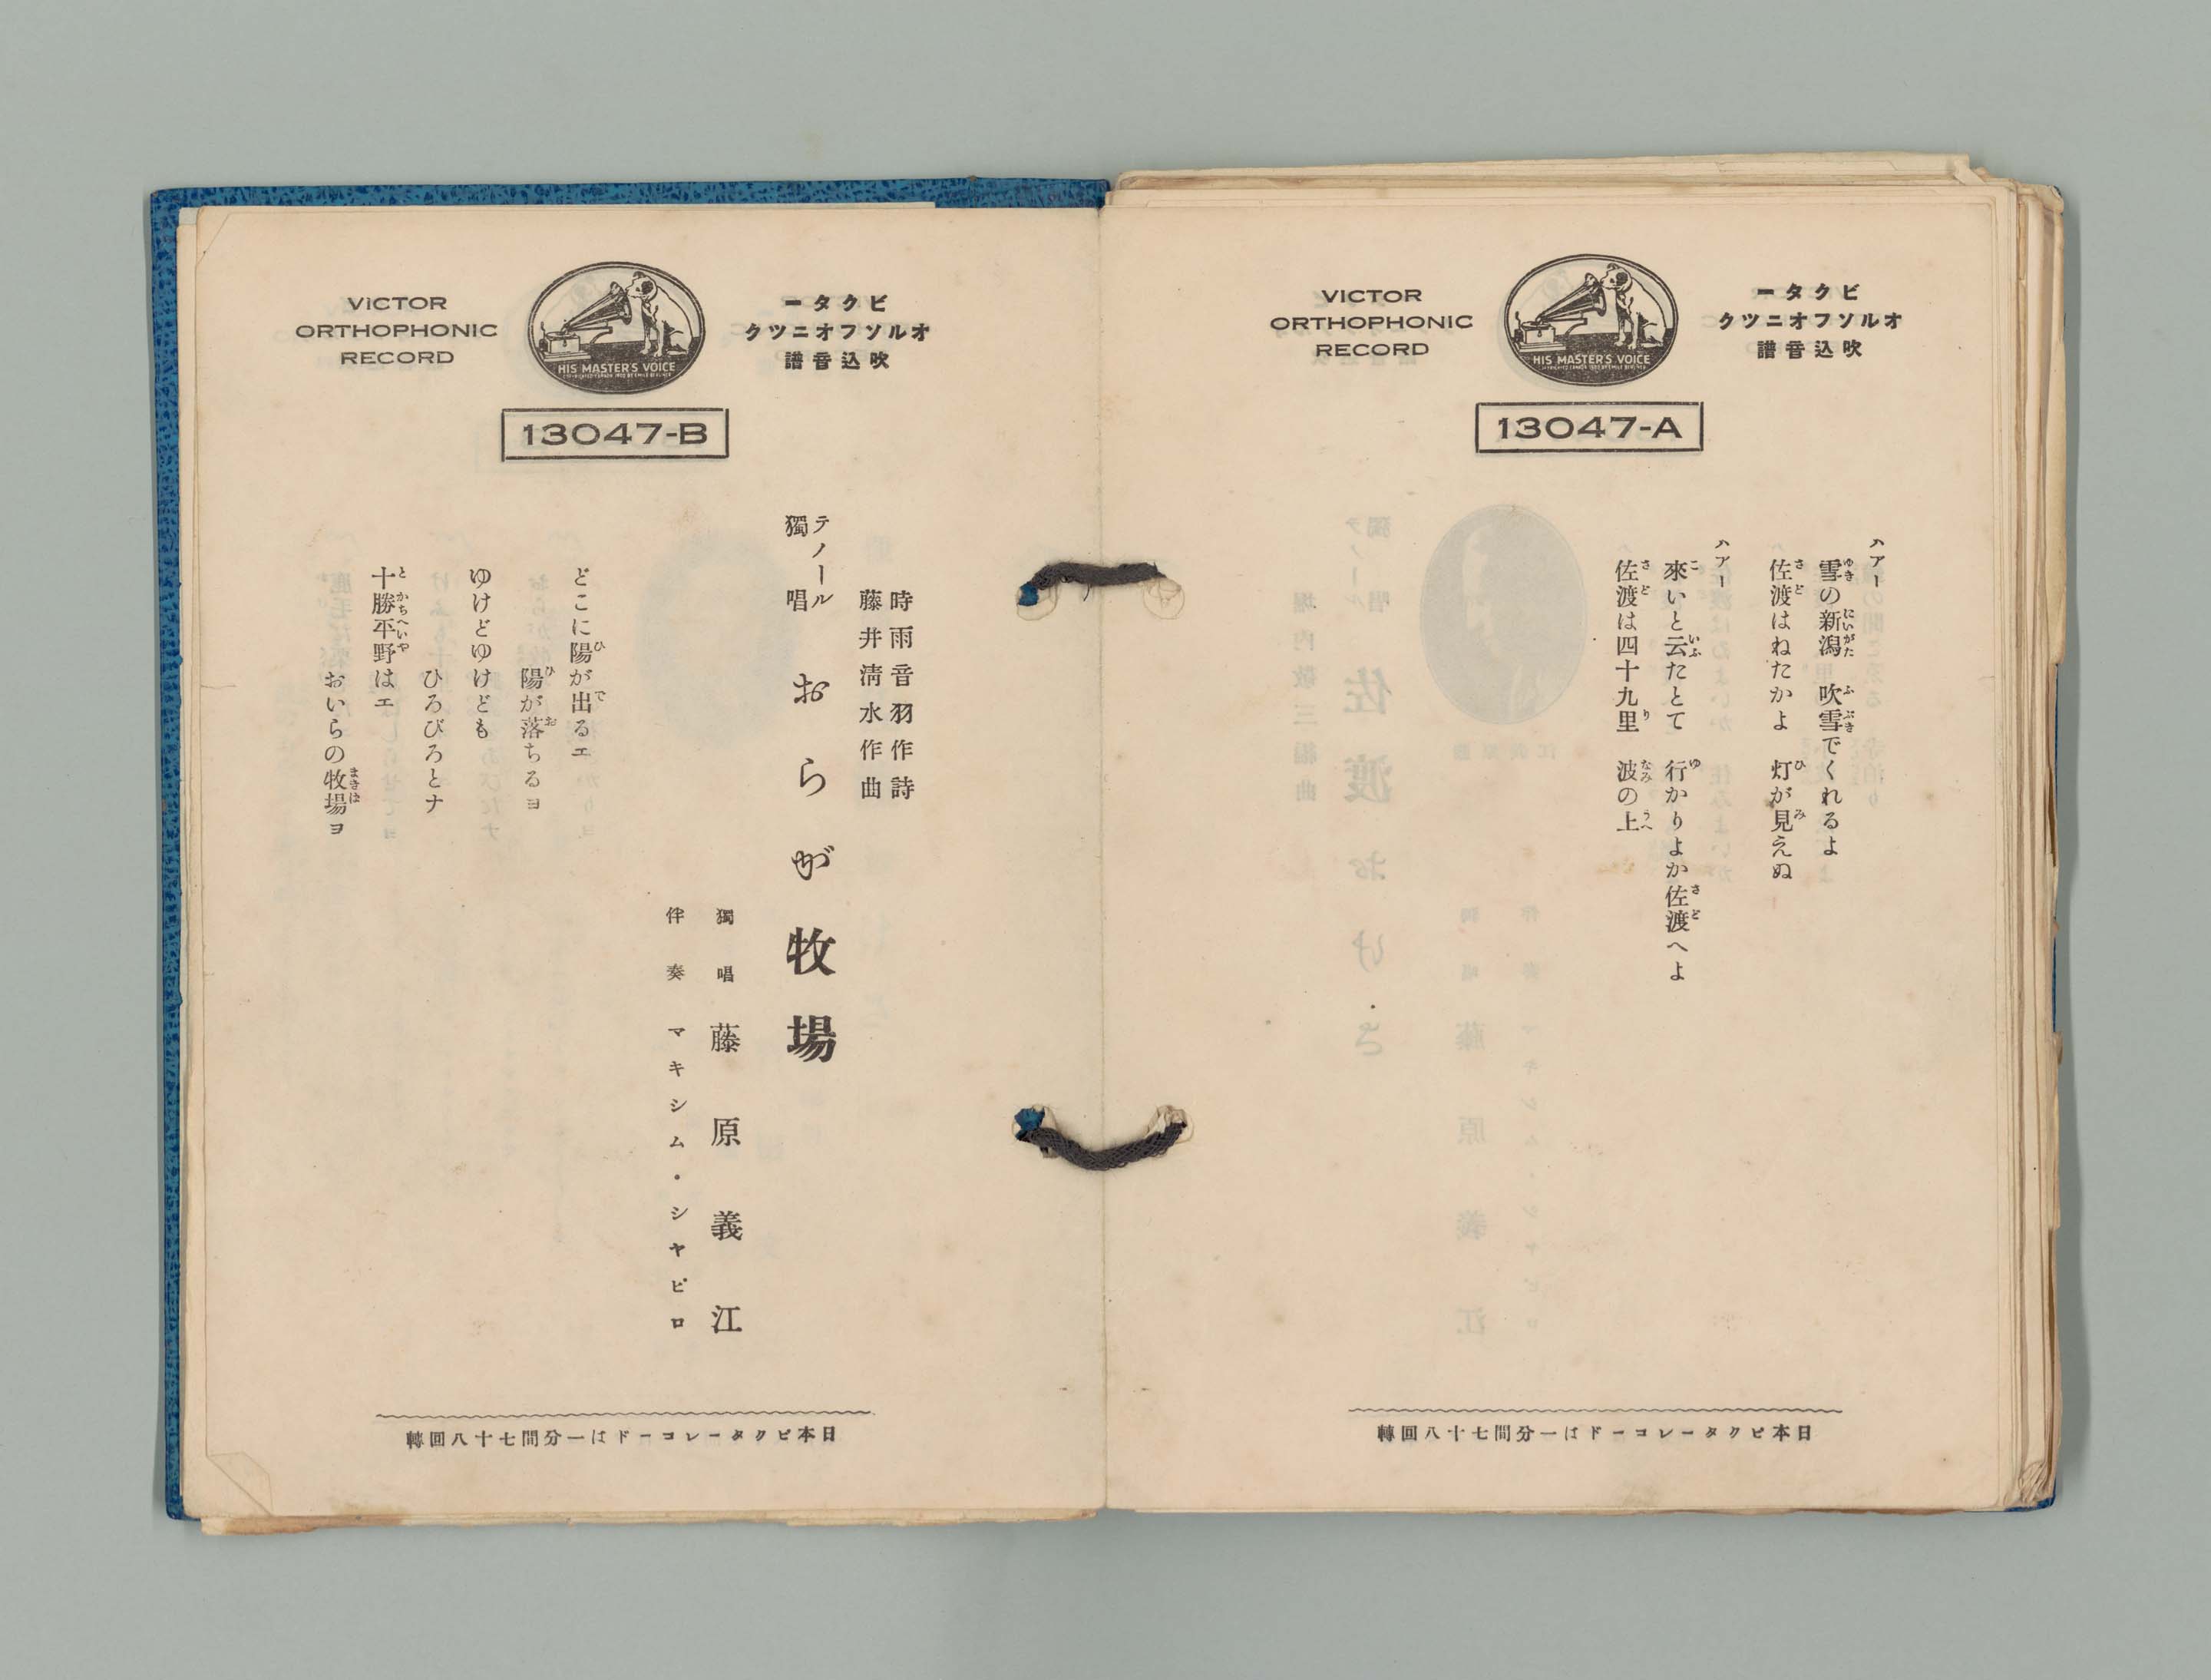 VICTOR
ORTHOPHONIC
RECORD
HIS MASTER'S VOICE
ビクター
オルソフオニツク
吹込音譜
13047-A
ハアー
雪の新潟　吹雪でくれるよ
佐渡はねたかよ　灯が見えぬ
ハアー
來いと云たとて　行かりよか佐渡へよ
佐渡は四十九里　波の上
日本ビクターレコードは一分間七十八回轉
VICTOR
ORTHOPHONIC
RECORD
HIS MASTER'S VOICE
ビクター
オルソフオニツク
吹込音譜
13047-B
時雨音羽作詩
藤井淸水作曲
テノール
獨唱
おらが牧場
獨唱　藤原義江
伴奏　マキシム・シヤピロ
どこに陽が出るエ
陽が落ちるヨ
ゆけどゆけども
ひろびろとナ
十勝平野はエ
おいらの牧場ヨ
日本ビクターレコードは一分間七十八回轉